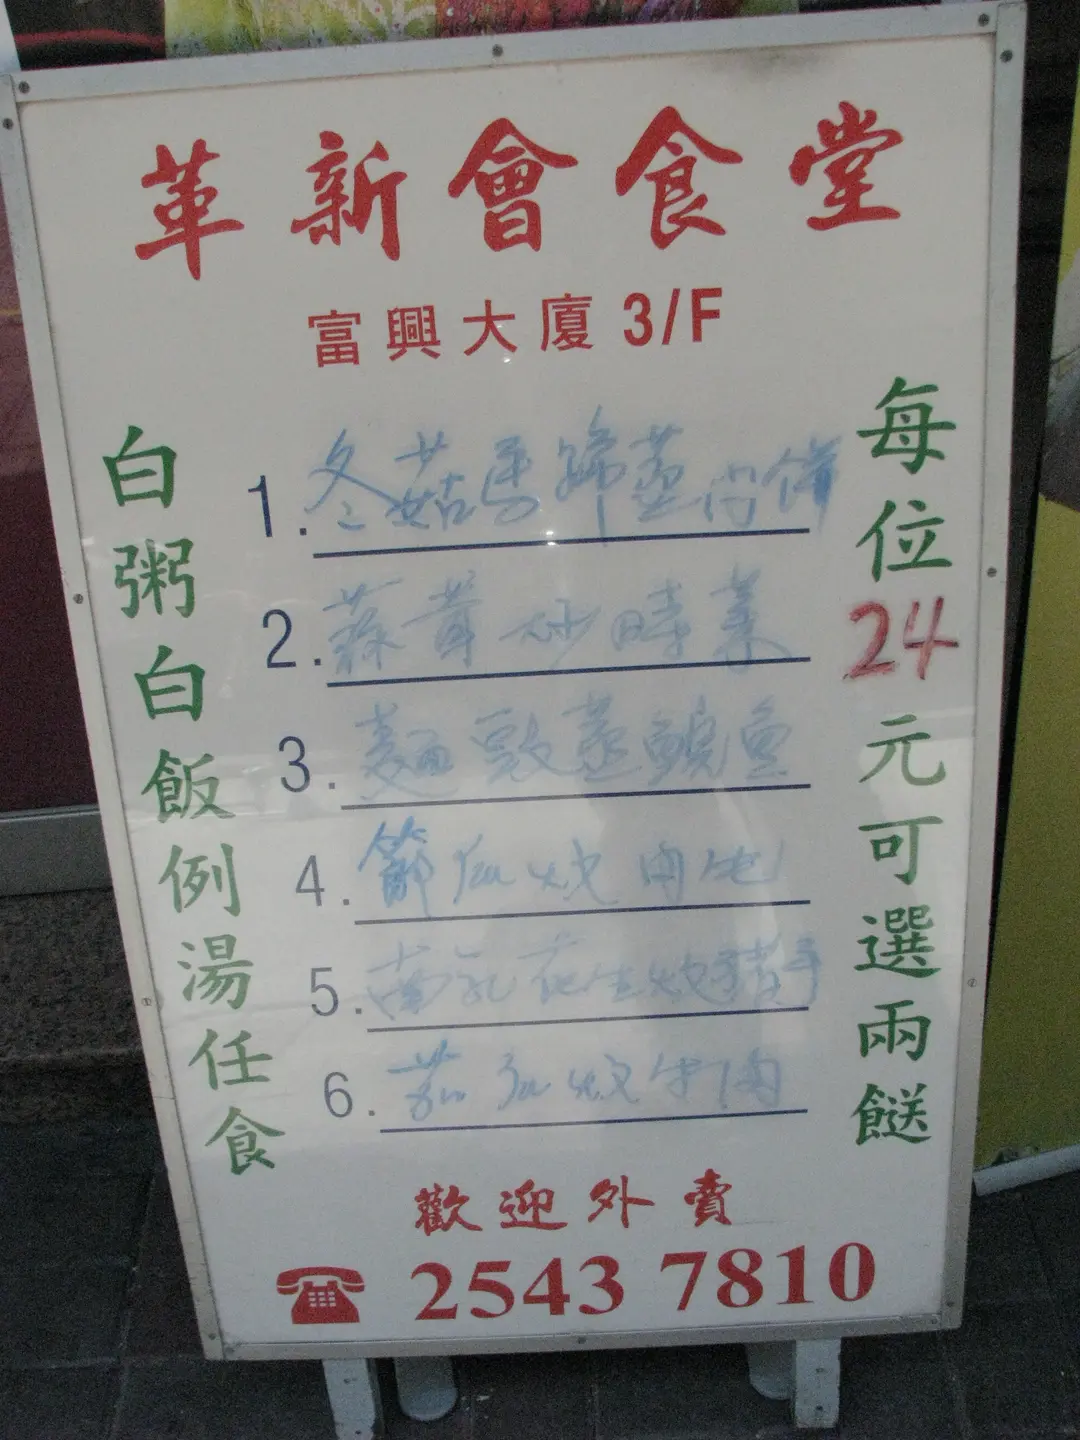 革新會食堂
富興大廈 3/F
每位24元可選兩餸
白粥白飯例湯任食
1. 冬菇馬蹄蒸肉餅
2. 蒜茸炒時菜
3. 麵豉蒸鯇魚
4. 節瓜炆肉
5. 南乳花生炆豬手
6. 茄瓜炆牛肉
歡迎外賣
☎ 2543 7810